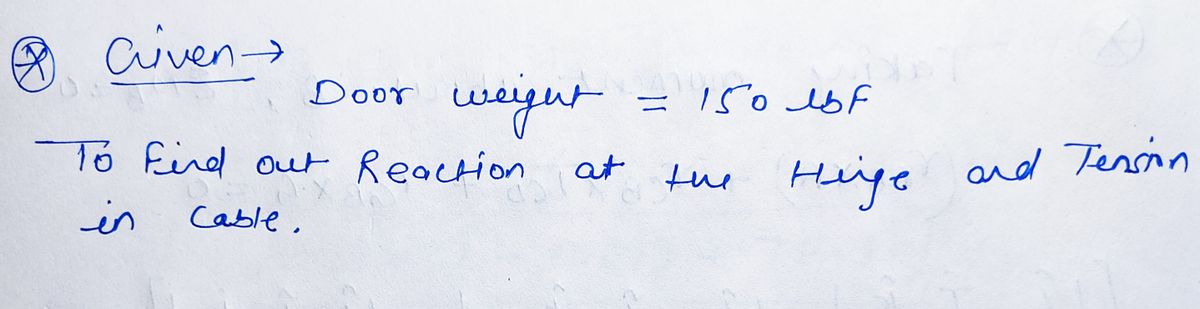 Given →
Door weight = 150 lbf
To find out Reaction at the Hinge and Tension
in Cable.